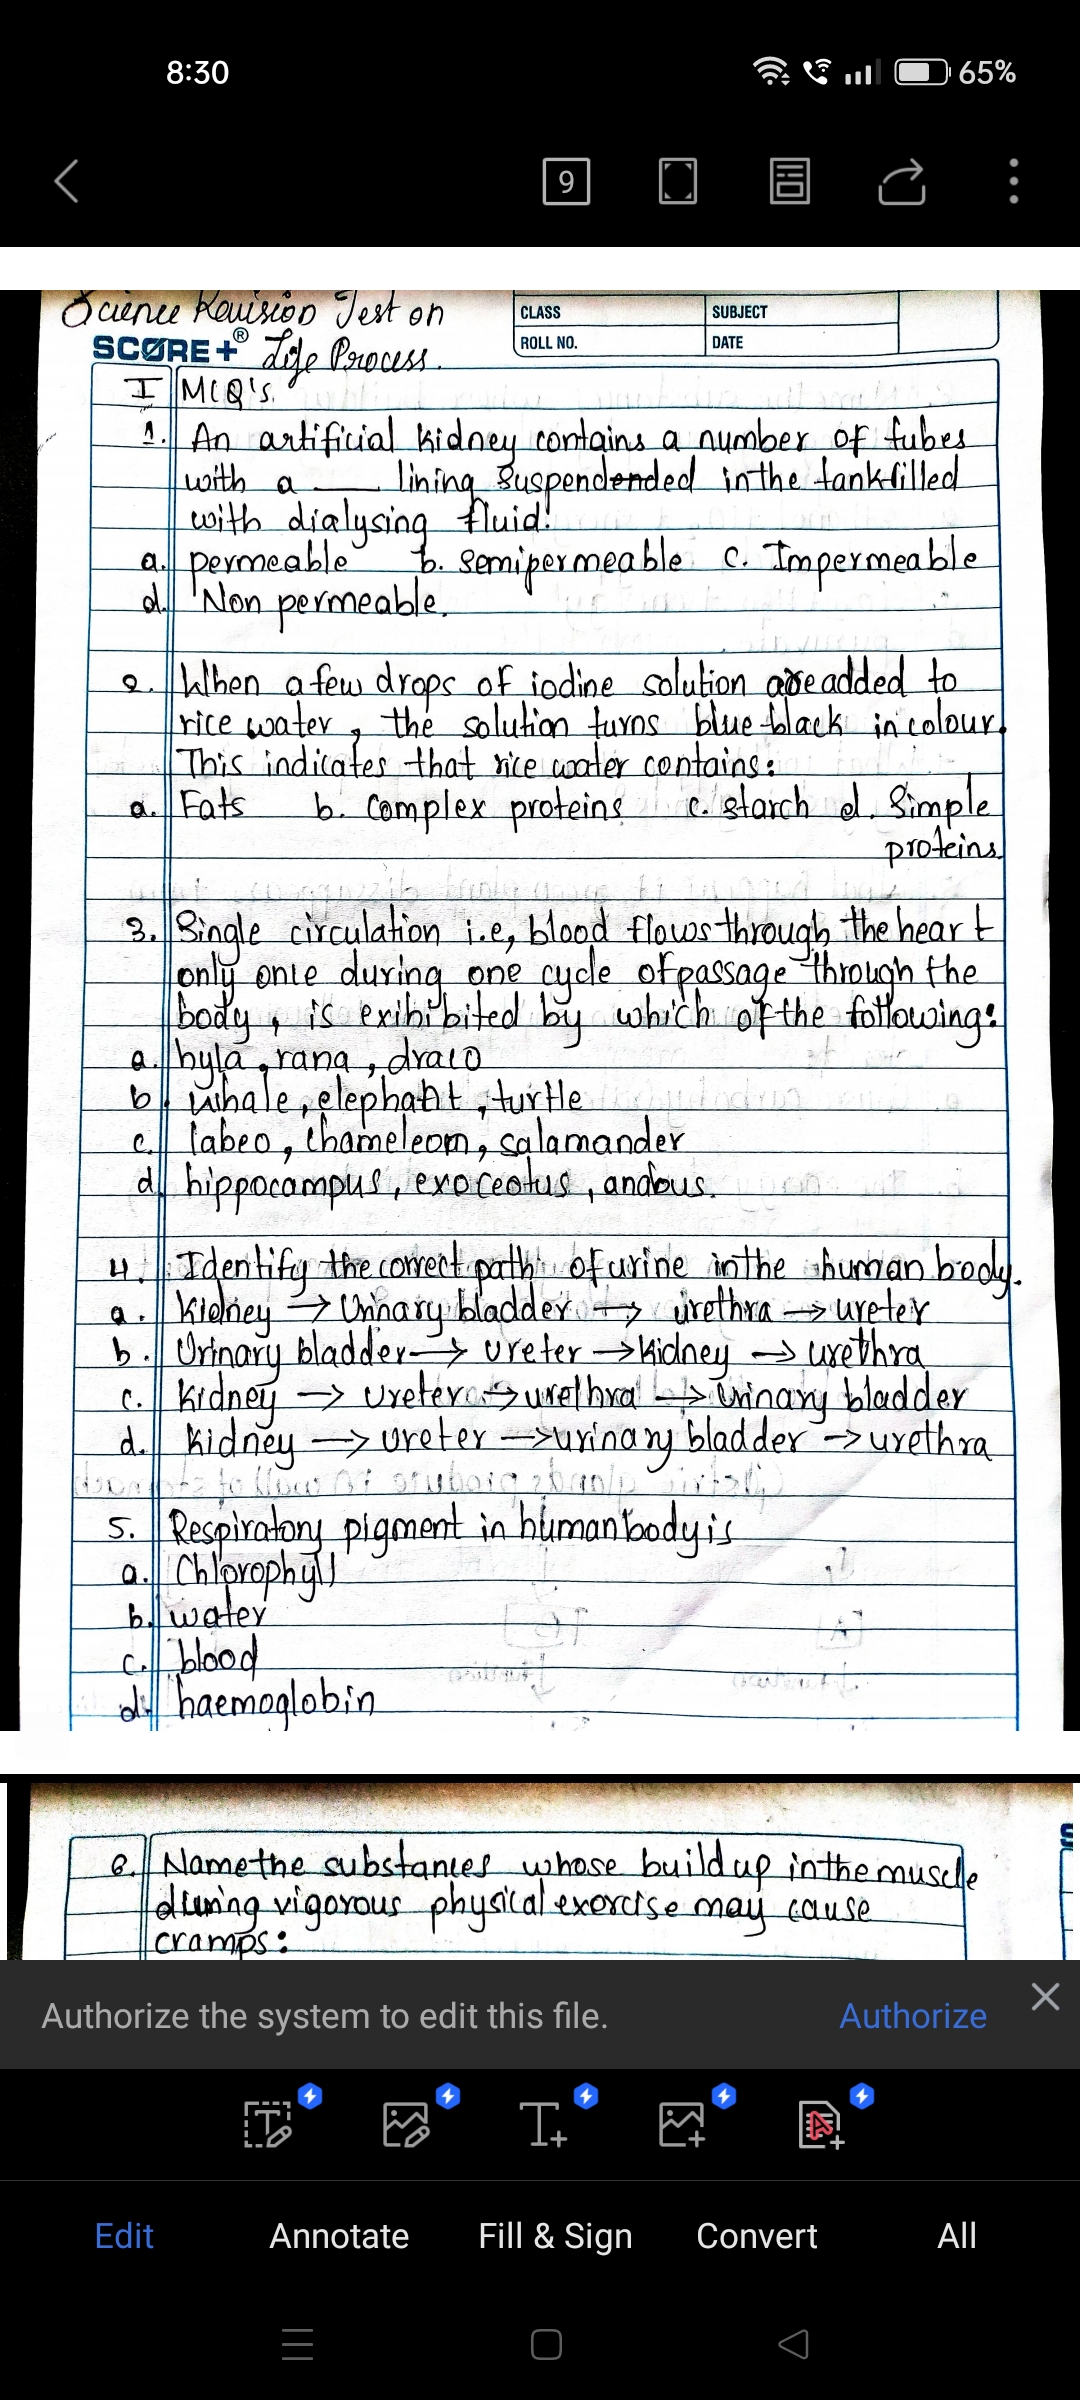 8:30
65%
9
Science Revision Test on
CLASS
SUBJECT
SCORE+® Life Process.
ROLL NO.
DATE
I MCQ's.
1. An artificial kidney contains a number of tubes
with a ___ lining suspended in the tank filled
with dialysing fluid!
a. permeable b. semipermeable c. Impermeable
d. Non permeable.
2. When a few drops of iodine solution are added to
rice water, the solution turns blue-black in colour.
This indicates that rice water contains:
a. Fats b. complex proteins c. starch d. Simple
proteins.
3. Single circulation i.e, blood flows through the heart
only once during one cycle of passage through the
body, is exihibited by which of the following:
a. hyla, rana, draco
b. whale, elephant, turtle
c. labeo, chameleom, salamander
d. hippocampus, exoceotus, anabus.
4. Identify the correct path of urine in the human body.
a. Kidney → Urinary bladder → urethra → ureter
b. Urinary bladder → ureter → Kidney → urethra
c. Kidney → ureter → urethra → Urinary bladder
d. Kidney → ureter → urinary bladder → urethra
5. Respiratory pigment in human body is
a. Chlorophyll
b. water
c. blood
d. haemoglobin
6. Name the substances whose build up in the muscle
during vigorous physical exercise may cause
cramps:
Authorize the system to edit this file.
Authorize
Edit
Annotate
Fill & Sign
Convert
All